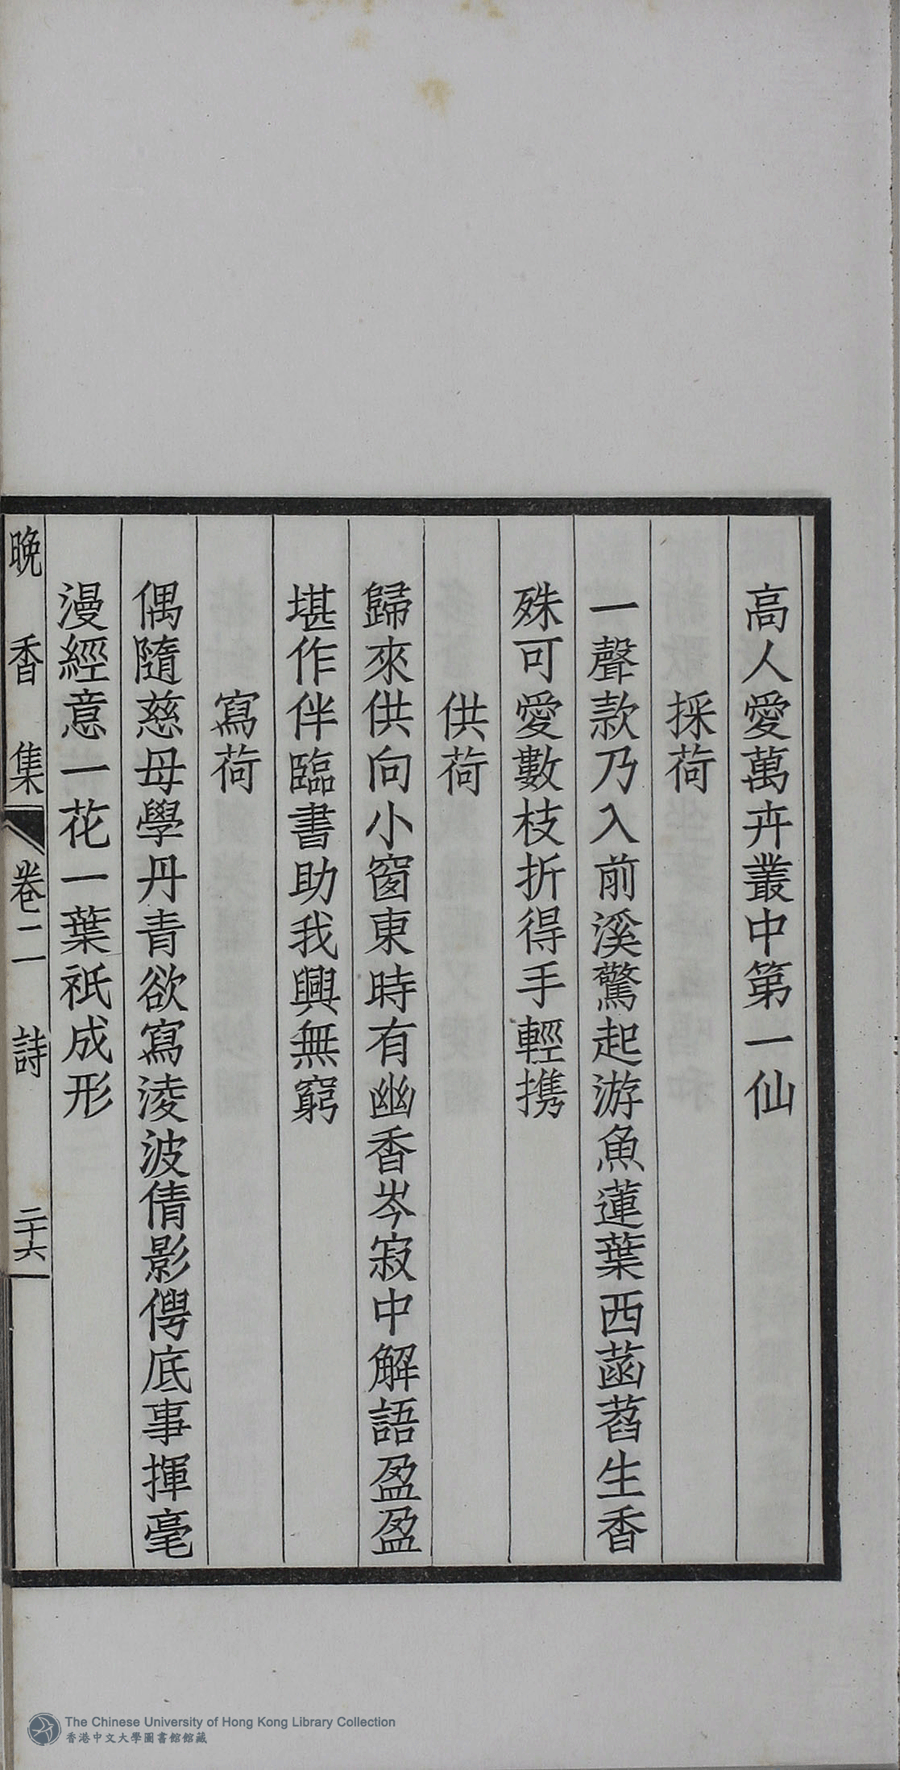 高人愛萬卉叢中第一仙
採荷
一聲款乃入前溪驚起游魚蓮葉西菡萏生香
殊可愛數枝折得手輕携
供荷
歸來供向小窗東時有幽香岑寂中解語盈盈
堪作伴臨書助我興無窮
寫荷
偶隨慈母學丹青欲寫淩波倩影俜底事揮毫
漫經意一花一葉祇成形
晚香集 卷二 詩 二十六
The Chinese University of Hong Kong Library Collection
香港中文大學圖書館館藏